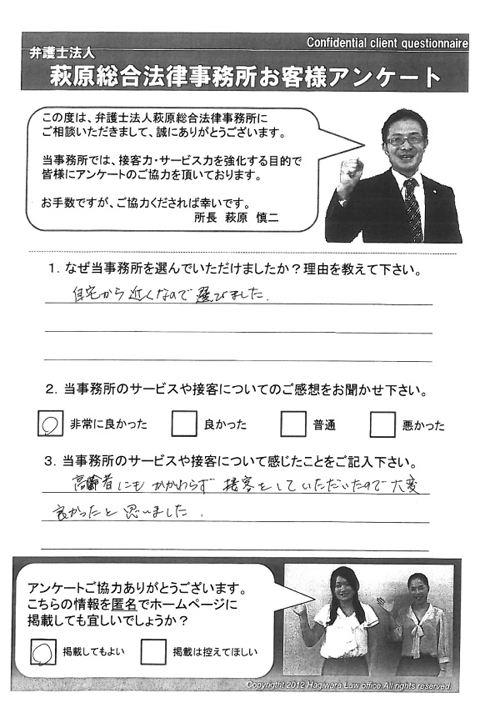 Confidential client questionnaire
弁護士法人
萩原総合法律事務所お客様アンケート
この度は、弁護士法人萩原総合法律事務所に
ご相談いただきまして、誠にありがとうございます。
当事務所では、接客力・サービス力を強化する目的で
皆様にアンケートのご協力を頂いております。
お手数ですが、ご協力くだされば幸いです。
所長 萩原 慎二
1. なぜ当事務所を選んでいただけましたか？理由を教えて下さい。
自宅から近くなので選びました.
2. 当事務所のサービスや接客についてのご感想をお聞かせ下さい。
非常に良かった 良かった 普通 悪かった
3. 当事務所のサービスや接客について感じたことをご記入下さい。
高齢者にもかかわらず 接客をしていただいたので大変
良かったと思いました.
アンケートご協力ありがとうございます。
こちらの情報を匿名でホームページに
掲載しても宜しいでしょうか？
掲載してもよい 掲載は控えてほしい
Copyright 2012 Hagiwara Law office All rights reserved.